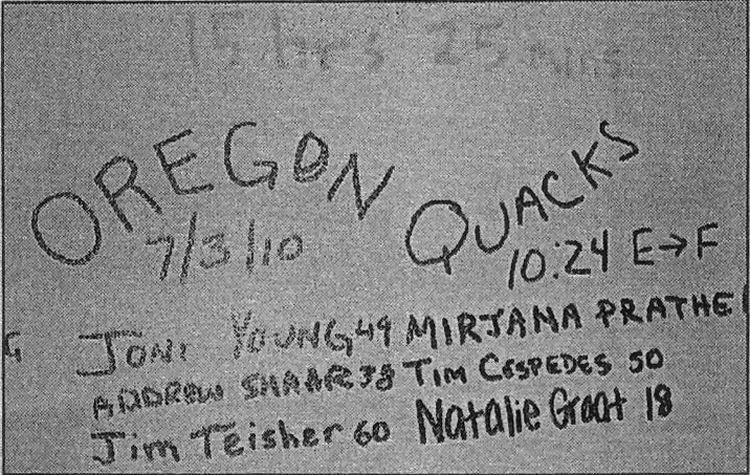 15 hrs 25 mins
OREGON QUACKS
7/3/10 10:24 E→F
G JONI YOUNG 49 MIRJANA PRATHE
ANDREW SHAAR 38 TIM CESPEDES 50
Jim Teisher 60 Natalie Groat 18